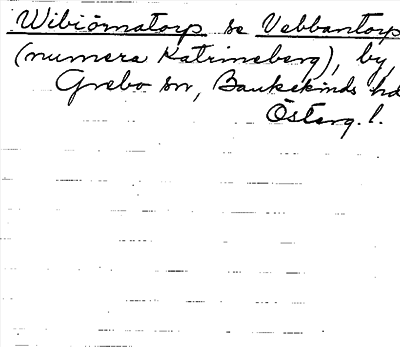 Wibiörnatorp se Vebbantorp
(numera Katrineberg), by,
Grebo sn, Bankekinds hd
Österg. l.